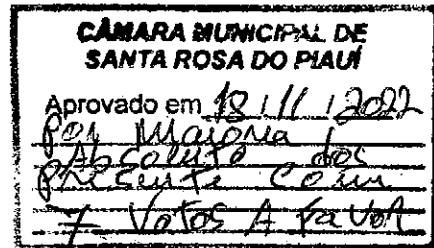 CÂMARA MUNICIPAL DE
SANTA ROSA DO PIAUÍ
Aprovado em 18 / 11 / 2022
Por Maioria
Absoluta dos
Presente Com
7 Votos A Favor